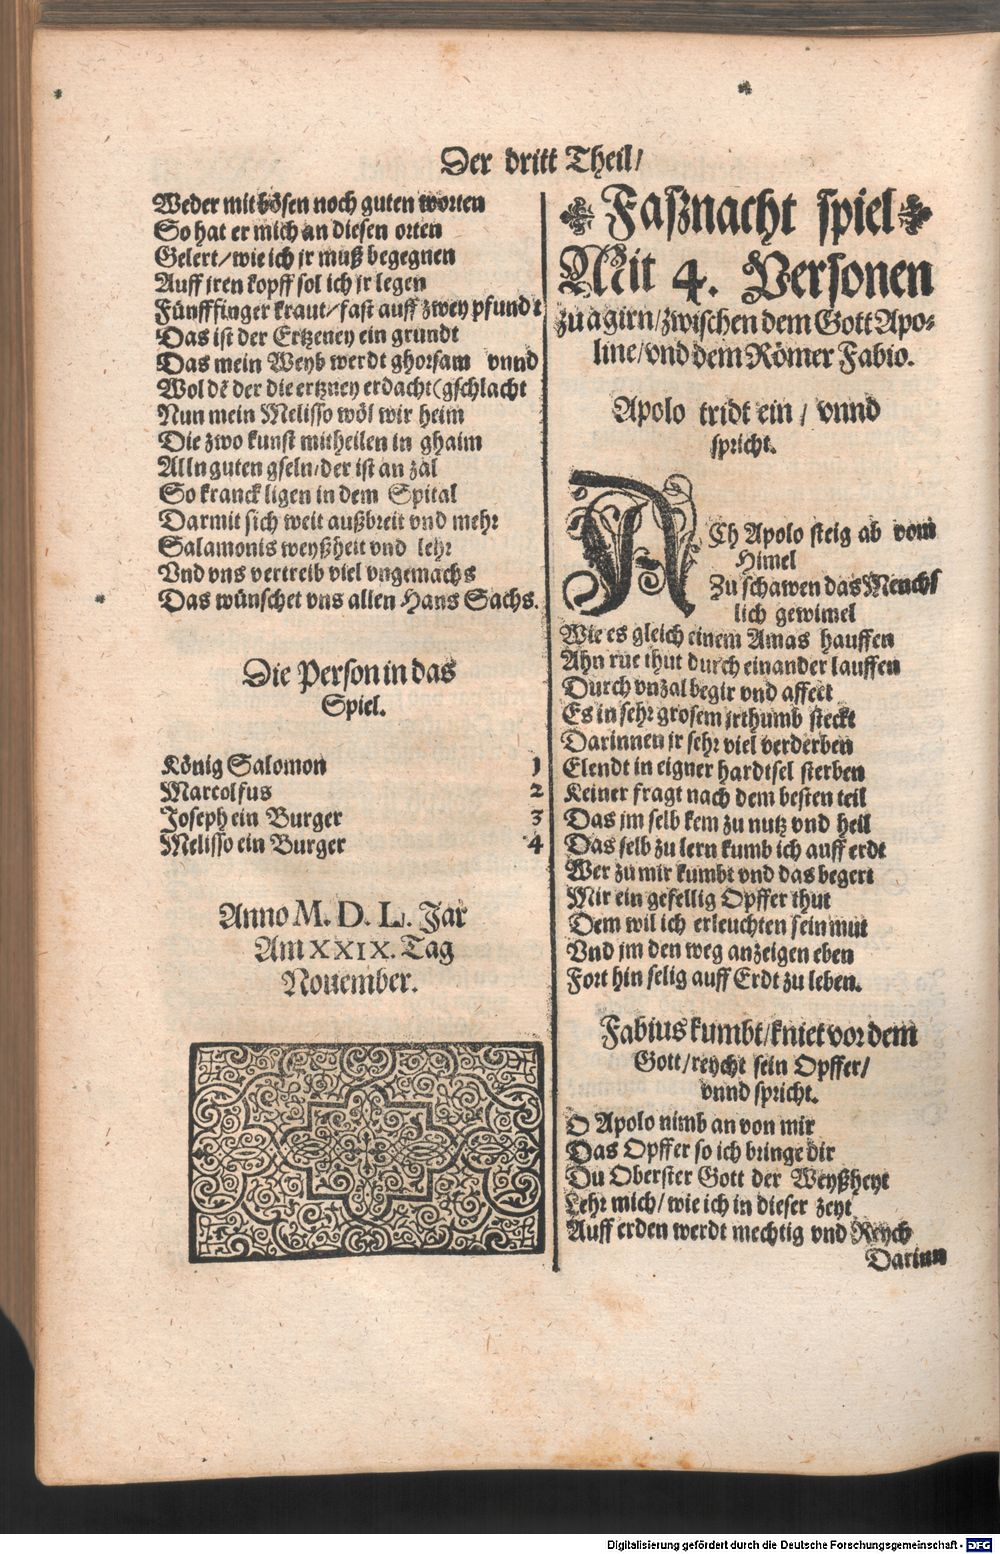 Der dritt Theil/
Weder mit bösen noch guten worten
So hat er mich an diesen orten
Gelert/wie ich jr muß begegnen
Auff jren kopff sol ich jr legen
Fünfffinger kraut/fast auff zwey pfundt
Das ist der Ertzeney ein grundt
Das mein Weyb werdt ghorsam vnnd
Wol dē der die ertzney erdacht (gschlacht
Nun mein Melisso wöl wir heim
Die zwo kunst mitheilen in ghaim
Alln guten gseln/der ist an zal
So kranck ligen in dem Spital
Darmit sich weit außbreit vnd mehr
Salamonis weyßheit vnd lehr
Vnd vns vertreib viel vngemachs
Das wünschet vns allen Hans Sachs.
Die Person in das
Spiel.
König Salomon 1
Marcolfus 2
Joseph ein Burger 3
Melisso ein Burger 4
Anno M. D. L. Jar
Am XXIX. Tag
Nouember.
Faßnacht spiel
Mit 4. Personen
zu agirn/zwischen dem Gott Apo-
line/vnd dem Römer Fabio.
Apolo tridt ein / vnnd
spricht.
Ch Apolo steig ab vom
Himel
Zu schawen das Mensch
lich gewimel
Wie es gleich einem Amas hauffen
Ahn rue thut durch einander lauffen
Durch vnzal begir vnd affect
Es in sehr grosem jrthumb steckt
Darinnen jr sehr viel verderben
Elendt in eigner hardtsel sterben
Keiner fragt nach dem besten teil
Das jm selb kem zu nutz vnd heil
Das selb zu lern kumb ich auff erdt
Wer zu mir kumbt vnd das begert
Mir ein gefellig Opffer thut
Dem wil ich erleuchten sein mut
Vnd jm den weg anzeigen eben
Fort hin selig auff Erdt zu leben.
Fabius kumbt/kniet vor dem
Gott/reycht sein Opffer/
vnnd spricht.
O Apolo nimb an von mir
Das Opffer so ich bringe dir
Du Oberster Gott der Weyßheyt
Lehr mich/ wie ich in dieser zeyt
Auff erden werdt mechtig vnd Reych
Darinn
Digitalisierung gefördert durch die Deutsche Forschungsgemeinschaft - DFG